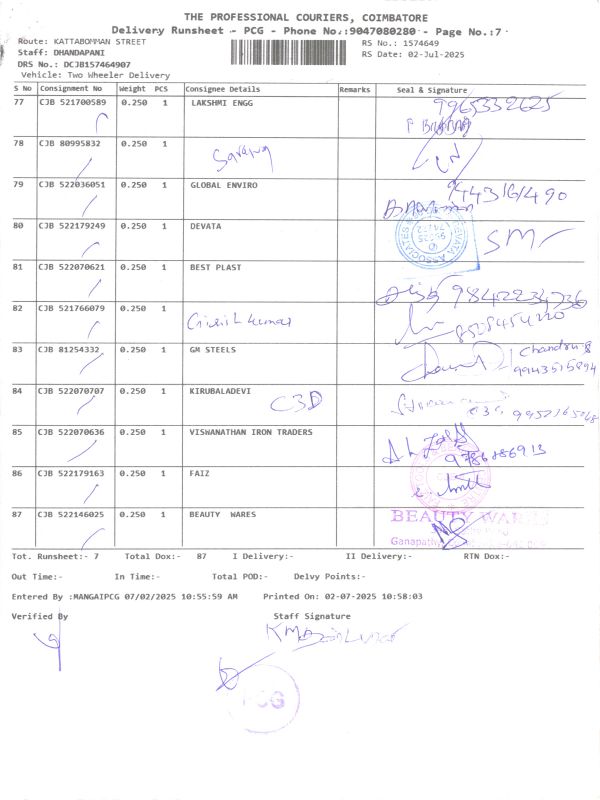 THE PROFESSIONAL COURIERS, COIMBATORE
Delivery Runsheet - PCG - Phone No.:9047080280 - Page No.:7
Route: KATTABOMMAN STREET
RS No.: 1574649
Staff: DHANDAPANI
RS Date: 02-Jul-2025
DRS No.: DCJB157464907
Vehicle: Two Wheeler Delivery
S No Consignment No Weight PCS Consignee Details Remarks Seal & Signature
77 CJB 521700589 0.250 1 LAKSHMI ENGG 9965332625
78 CJB 80995832 0.250 1
79 CJB 522036051 0.250 1 GLOBAL ENVIRO
80 CJB 522179249 0.250 1 DEVATA
81 CJB 522070621 0.250 1 BEST PLAST
82 CJB 521766079 0.250 1 Girish kumar
83 CJB 81254332 0.250 1 GM STEELS Chandru
84 CJB 522070707 0.250 1 KIRUBALADEVI C3D
85 CJB 522070636 0.250 1 VISWANATHAN IRON TRADERS
86 CJB 522179163 0.250 1 FAIZ
87 CJB 522146025 0.250 1 BEAUTY WARES BEAUTY WARES
Tot. Runsheet:- 7 Total Dox:- 87 I Delivery:- II Delivery:- RTN Dox:-
Out Time:- In Time:- Total POD:- Delvy Points:-
Entered By :MANGAIPCG 07/02/2025 10:55:59 AM Printed On: 02-07-2025 10:58:03
Verified By Staff Signature
PCG